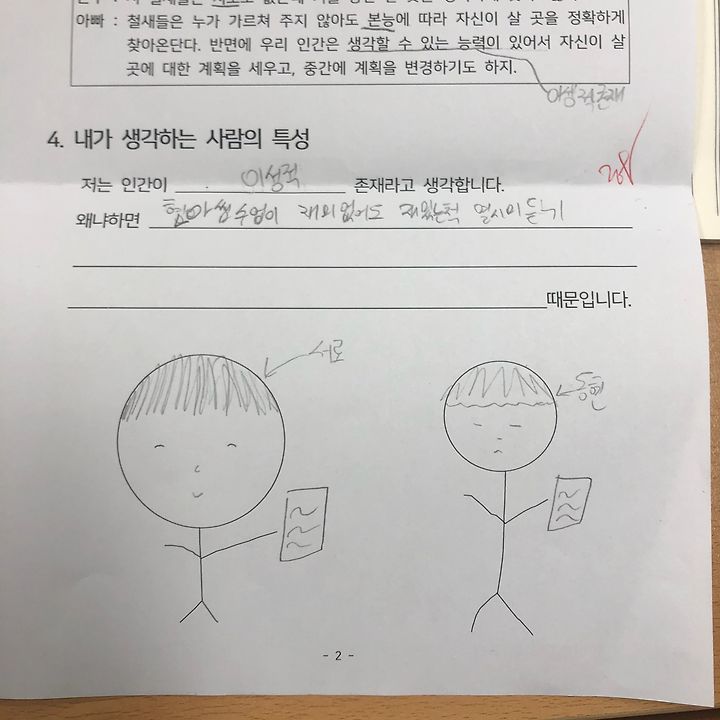 아빠 : 철새들은 누가 가르쳐 주지 않아도 본능에 따라 자신이 살 곳을 정확하게
찾아온단다. 반면에 우리 인간은 생각할 수 있는 능력이 있어서 자신이 살
곳에 대한 계획을 세우고, 중간에 계획을 변경하기도 하지.
이성적 존재
4. 내가 생각하는 사람의 특성
저는 인간이 이성적 존재라고 생각합니다.
왜냐하면 쌤 수업이 재미없어도 재밌는척 열시미 듣기
때문입니다.
서로
동현
- 2 -